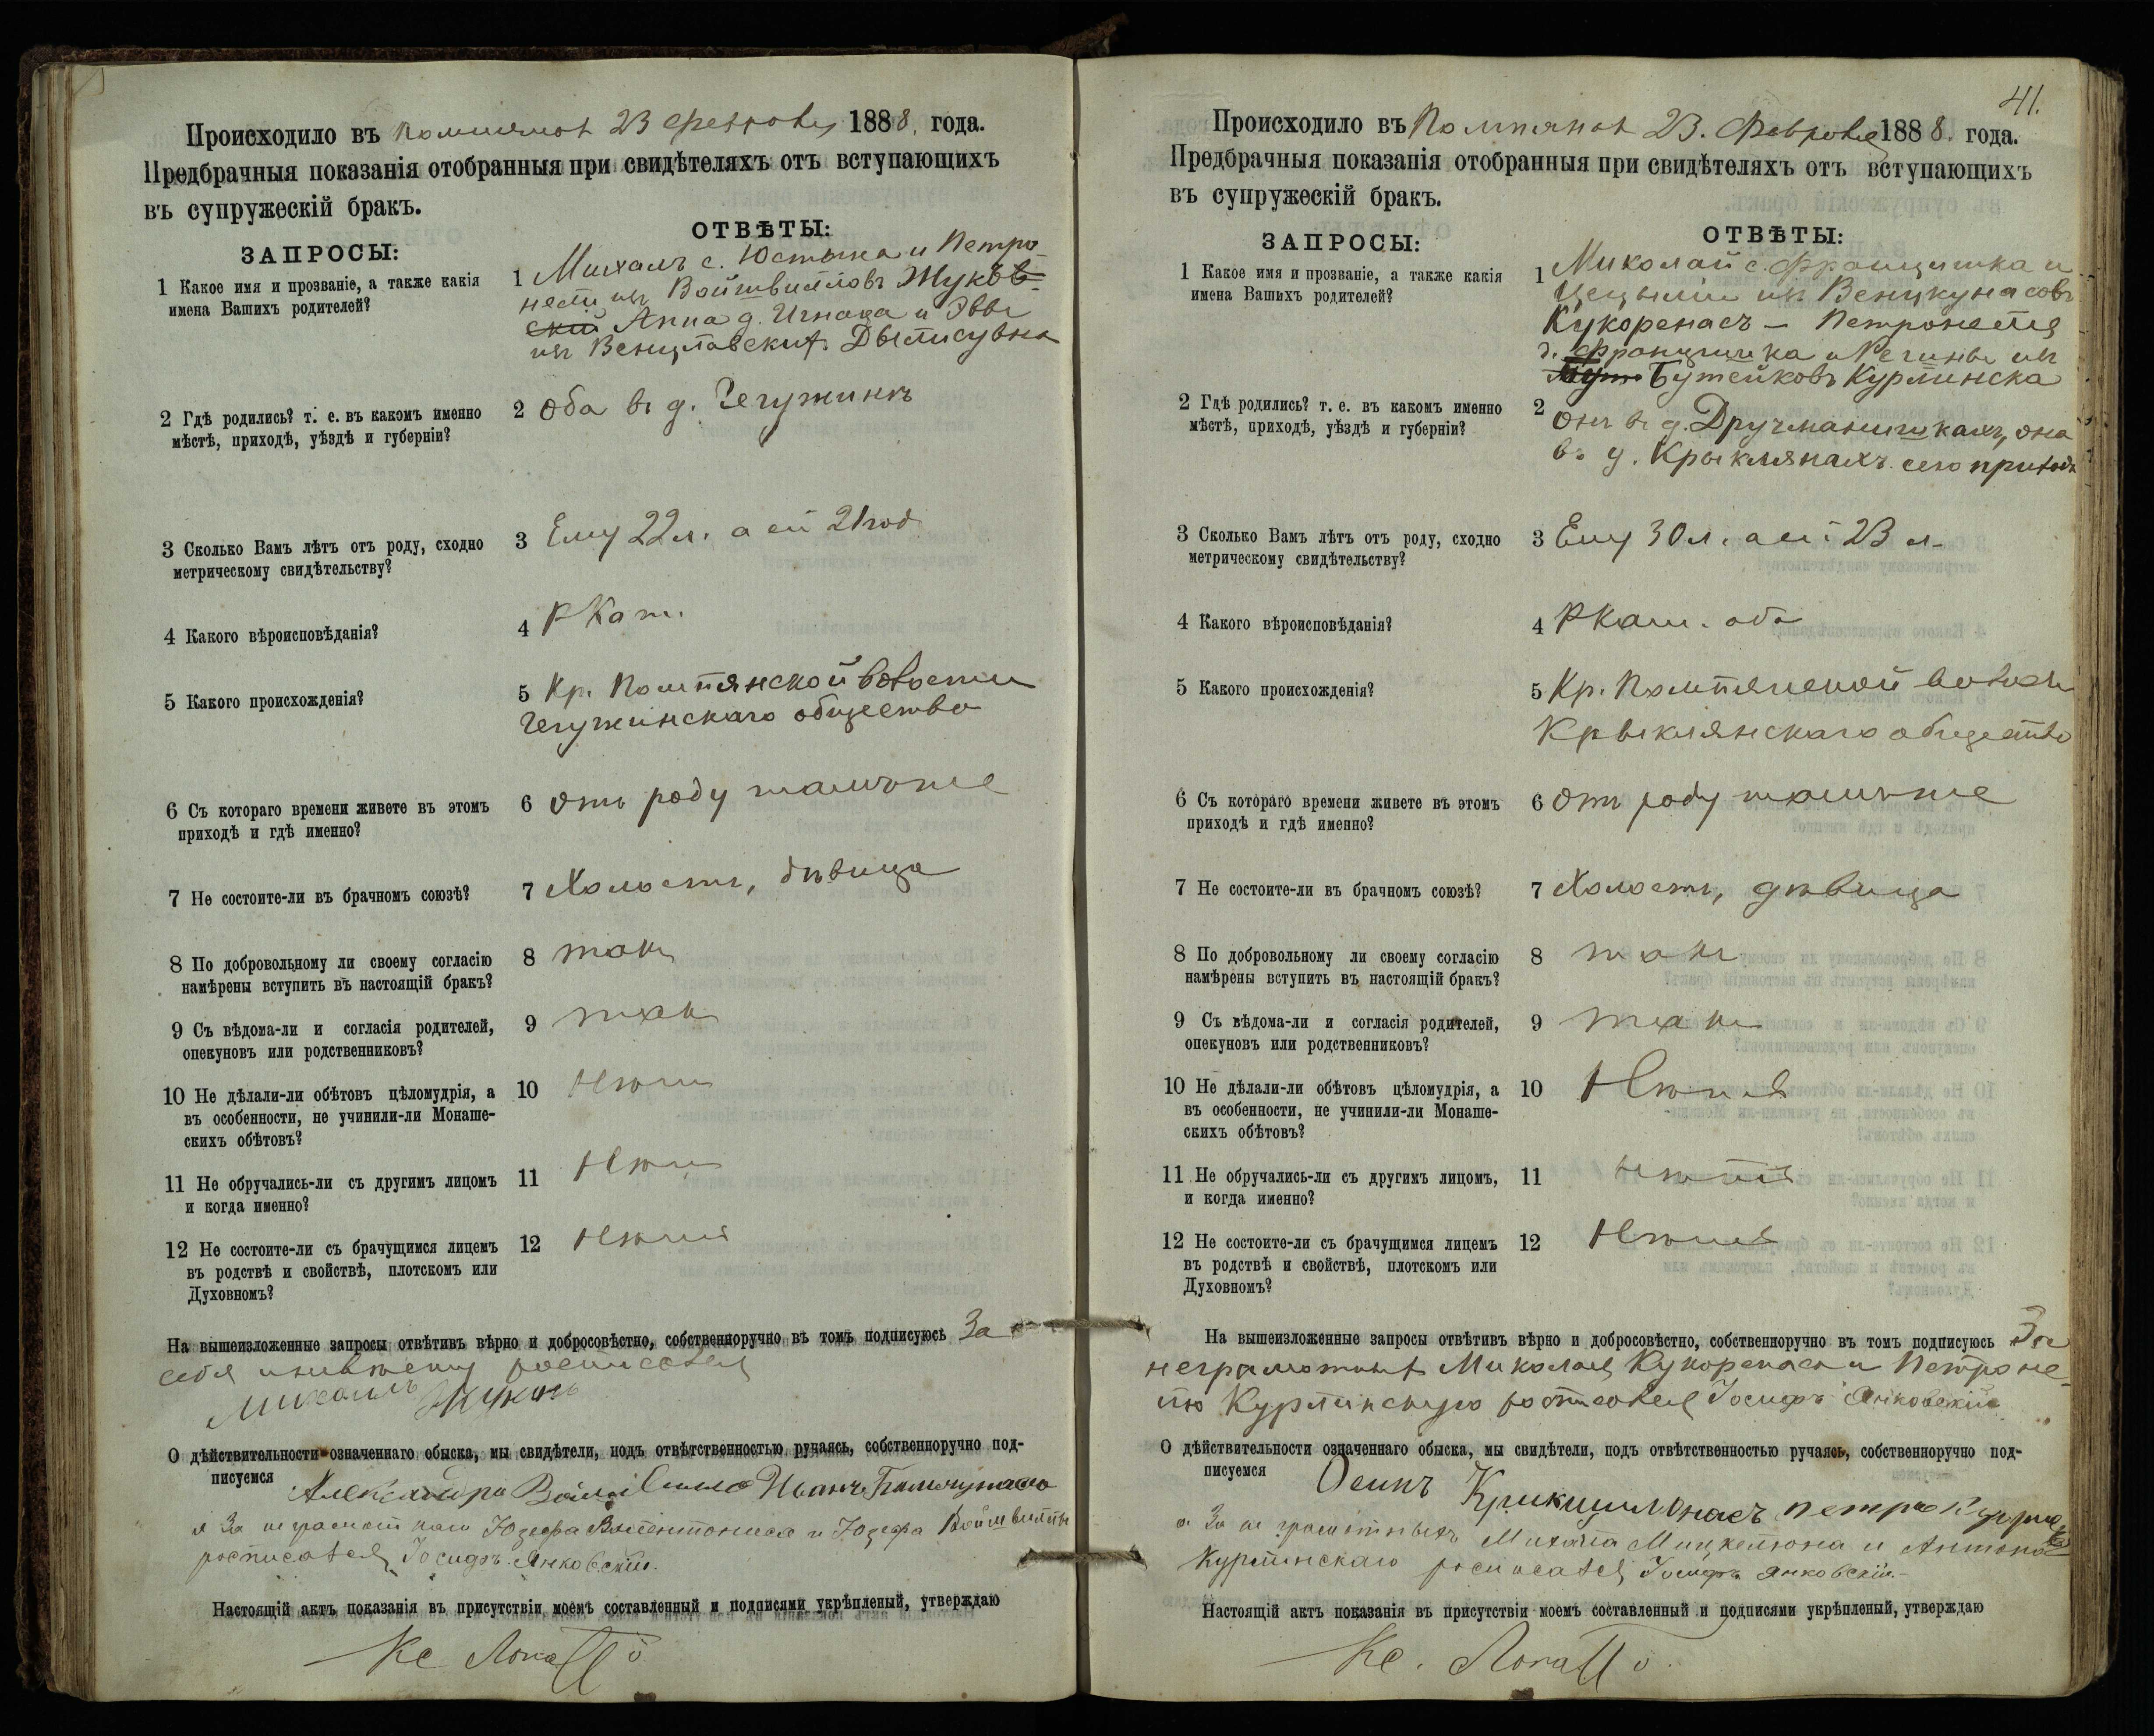 Происходило въ 23 1888. года.
Предбрачныя показанія отобранныя при свидѣтеляхъ отъ вступающихъ
въ супружескій бракъ.
ЗАПРОСЫ:
ОТВѢТЫ:
1 Какое имя и прозваніе, а также какія
имена Вашихъ родителей?
1 Михалъ с. Юстына и Петро-
нели изъ Войтвилловъ Жуков-
скій Анна д. Игнаца и Эвы
изъ
2 Гдѣ родились? т. е. въ какомъ именно
мѣстѣ, приходѣ, уѣздѣ и губерніи?
2 Оба въ д.
3 Сколько Вамъ лѣтъ отъ роду, сходно
метрическому свидѣтельству?
3 Ему 22 л. а ей 21 год
4 Какого вѣроисповѣданія?
4 РКат.
5 Какого происхожденія?
5 Кр. Помпянской волости
общества
6 Съ котораго времени живете въ этомъ
приходѣ и гдѣ именно?
6 Отъ роду тамъ же
7 Не состоите-ли въ брачномъ союзѣ?
7 Холостъ, дѣвица
8 По добровольному ли своему согласію
намѣрены вступить въ настоящій бракъ?
8 такъ
9 Съ вѣдома-ли и согласія родителей,
опекуновъ или родственниковъ?
9 такъ
10 Не дѣлали-ли обѣтовъ цѣломудрія, а
въ особенности, не учинили-ли Монаше-
скихъ обѣтовъ?
10 Нѣтъ
11 Не обручались-ли съ другимъ лицомъ
и когда именно?
11 Нѣтъ
12 Не состоите-ли съ брачущимся лицемъ
въ родствѣ и свойствѣ, плотскомъ или
Духовномъ?
12 Нѣтъ
На вышеизложенные запросы отвѣтивъ вѣрно и добросовѣстно, собственноручно въ томъ подписуюсь За
себя и невѣсту
Михаилъ
О дѣйствительности означеннаго обыска, мы свидѣтели, подъ отвѣтственностью ручаясь, собственноручно под-
писуемся
а За неграмотныхъ Юзефа и Юзефа
росписался Іосифъ Янковскій.
Настоящій актъ показанія въ присутствіи моемъ составленный и подписями укрѣпленый, утверждаю
Кс
41.
Происходило въ 23. 1888. года.
Предбрачныя показанія отобранныя при свидѣтеляхъ отъ вступающихъ
въ супружескій бракъ.
ЗАПРОСЫ:
ОТВѢТЫ:
1 Какое имя и прозваніе, а также какія
имена Вашихъ родителей?
1 Миколай с. Францишка и
Цецыліи изъ Венцкунасовъ
Кукоренасъ – Петронеля
д. Францишка и Регины изъ
Бутейковъ Курлинска
2 Гдѣ родились? т. е. въ какомъ именно
мѣстѣ, приходѣ, уѣздѣ и губерніи?
2 Онъ въ д. она
въ д. Крыклянахъ сего прихода
3 Сколько Вамъ лѣтъ отъ роду, сходно
метрическому свидѣтельству?
3 Ему 30 л. а ей 23 л.
4 Какого вѣроисповѣданія?
4 РКат. оба
5 Какого происхожденія?
5 Кр. Помпянской волости
Крыклянскаго общества
6 Съ котораго времени живете въ этомъ
приходѣ и гдѣ именно?
6 Отъ роду тамъ же
7 Не состоите-ли въ брачномъ союзѣ?
7 Холостъ, дѣвица
8 По добровольному ли своему согласію
намѣрены вступить въ настоящій бракъ?
8 такъ
9 Съ вѣдома-ли и согласія родителей,
опекуновъ или родственниковъ?
9 такъ
10 Не дѣлали-ли обѣтовъ цѣломудрія, а
въ особенности, не учинили-ли Монаше-
скихъ обѣтовъ?
10 Нѣтъ
11 Не обручались-ли съ другимъ лицомъ,
и когда именно?
11 Нѣтъ
12 Не состоите-ли съ брачущимся лицемъ
въ родствѣ и свойствѣ, плотскомъ или
Духовномъ?
12 Нѣтъ
На вышеизложенные запросы отвѣтивъ вѣрно и добросовѣстно, собственноручно въ томъ подписуюсь За
неграмотныхъ Миколая Кукоренаса и Петроне-
лю Курлинскую росписался Іосифъ Янковскій
О дѣйствительности означеннаго обыска, мы свидѣтели, подъ отвѣтственностью ручаясь, собственноручно под-
писуемся Осипъ
а За неграмотныхъ Михала и Антона
Курлинскаго росписался Іосифъ Янковскій.
Настоящій актъ показанія въ присутствіи моемъ составленный и подписями укрѣпленый, утверждаю
Кс.